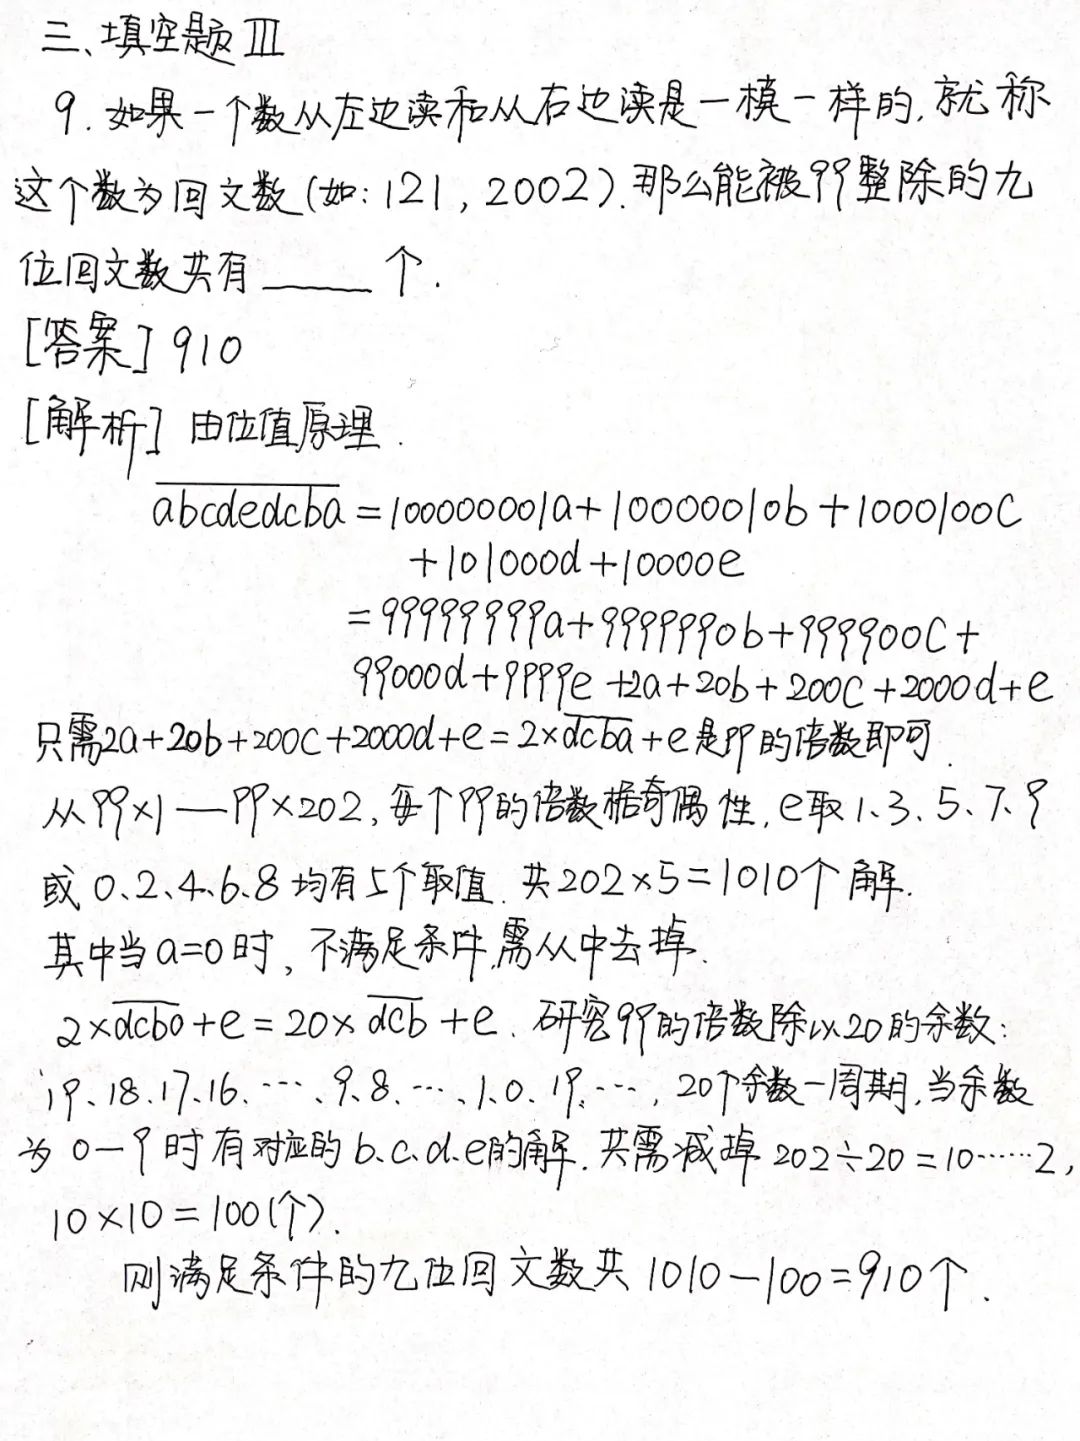 三、填空题III
9. 如果一个数从左边读和从右边读是一模一样的,就称
这个数为回文数(如:121,2002).那么能被99整除的九
位回文数共有_____个.
[答案]910
[解析]由位值原理.
abcdedcba=100000001a+10000010b+1000100c
+101000d+10000e
=99999999a+9999990b+999900c+
99000d+9999e+2a+20b+200c+2000d+e
只需2a+20b+200c+2000d+e=2×dcba+e是99的倍数即可.
从99×1—99×202,每个99的倍数据奇偶性,e取1、3、5、7、9
或0、2、4、6、8均有5个取值.共202×5=1010个解.
其中当a=0时,不满足条件,需从中去掉.
2×dcb0+e=20×dcb+e.研究99的倍数除以20的余数:
19、18、17、16、…、9、8、…、1、0、19、…,20个余数一周期,当余数
为0—9时有对应的b、c、d、e的解.共需减掉202÷20=10……2,
10×10=100(个).
则满足条件的九位回文数共1010-100=910个.